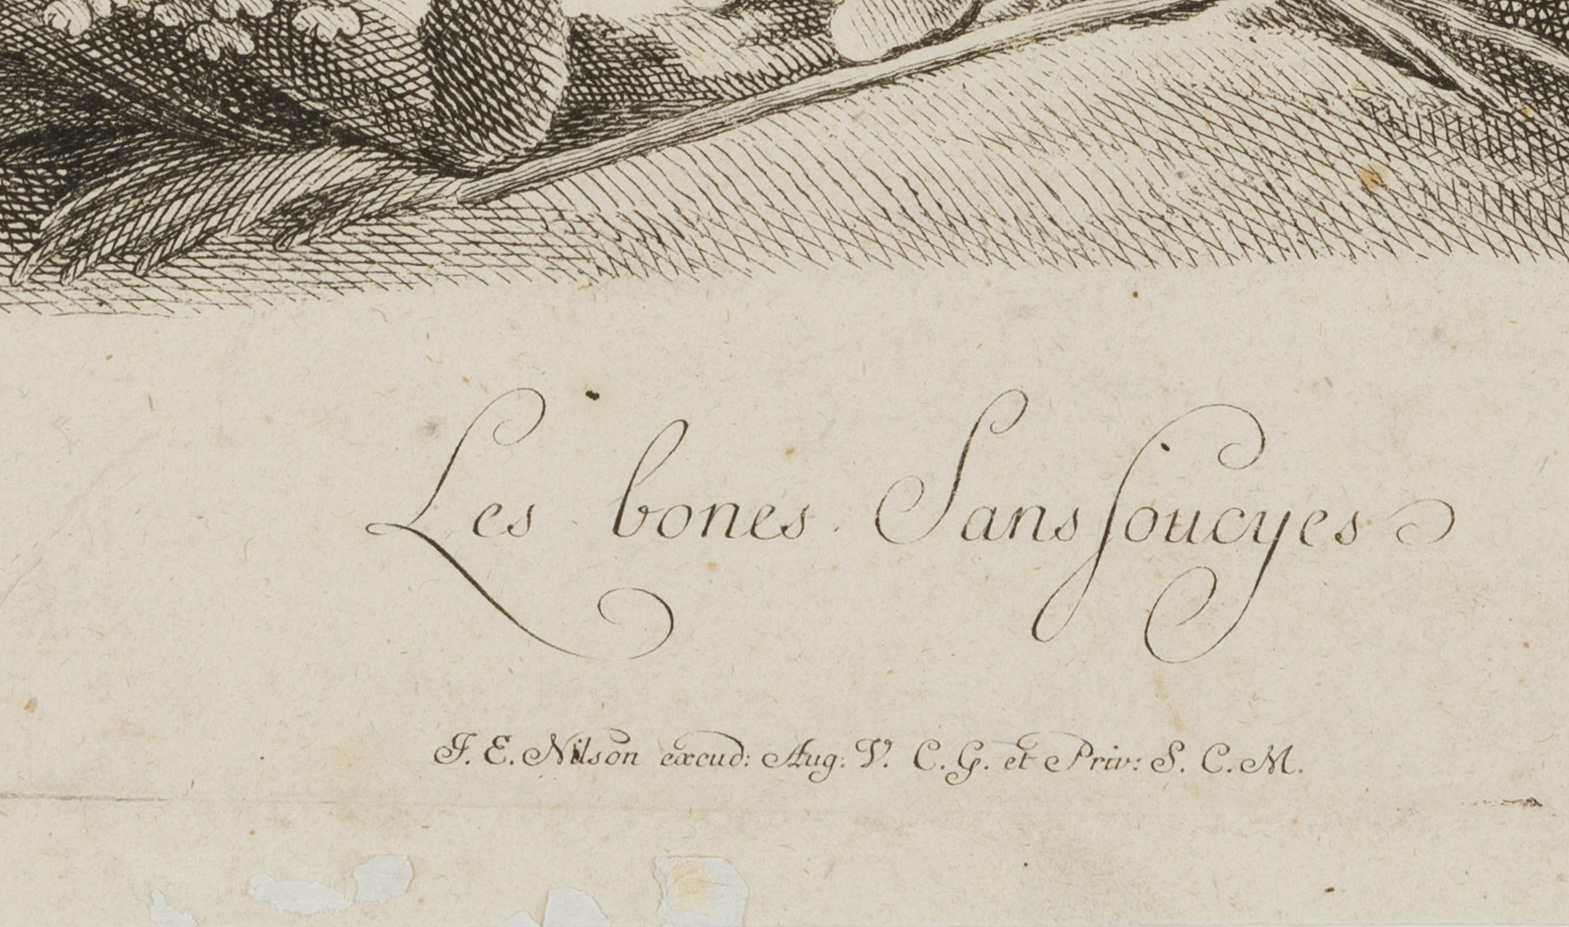 Les bones Sansſoucyes
J. E. Nilson excud: Aug. V. C. G. et Priv: S. C. M.